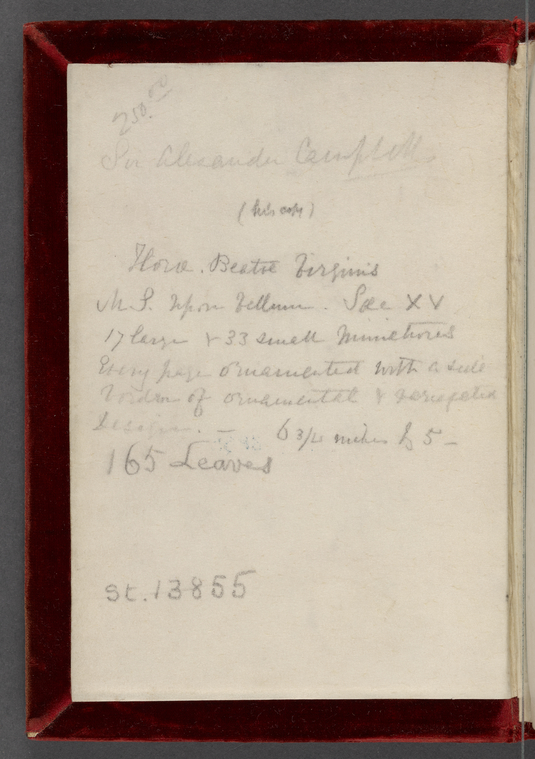 250.00
Sir Alexander Campbell
(his copy)
Horæ. Beatæ Virginis
M.S. upon Vellum. Sæc XV
17 large & 33 small miniatures
Every page ornamented with a side
border of ornamental & variegated
Design. — 6 3/4 inches by 5 —
165 Leaves
St. 13855